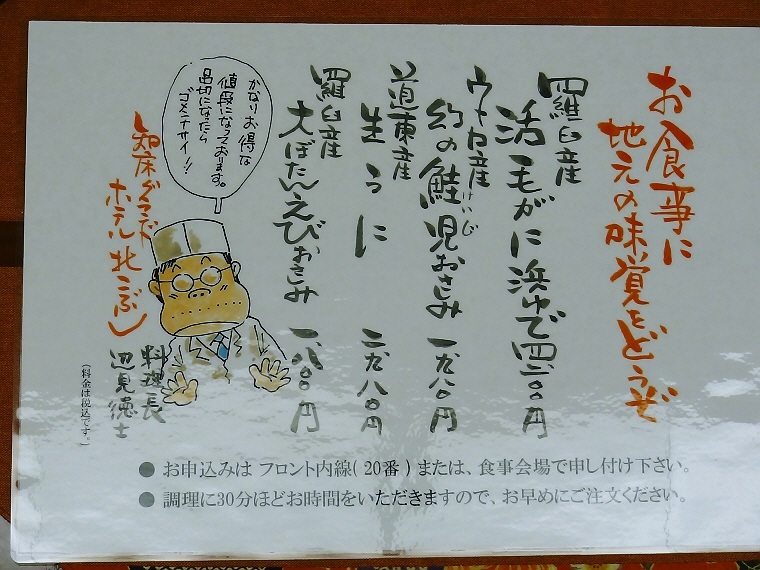 お食事に
地元の味覚をどうぞ
羅臼産
活毛がに浜ゆで 四二〇〇円
ウトロ産
幻の鮭児おさしみ 一九八〇円
けいじ
道東産
生うに 二九八〇円
羅臼産
大ぼたんえびおさしみ 一八〇〇円
かなりお得な
値段になっております。
品切になったら
ゴメンナサイ!!
知床グランド
ホテル北こぶし
料理長
辺見徳士
（料金は税込です。）
● お申込みは フロント内線( 20番 ) または、食事会場で申し付け下さい。
● 調理に30分ほどお時間をいただきますので、お早めにご注文ください。